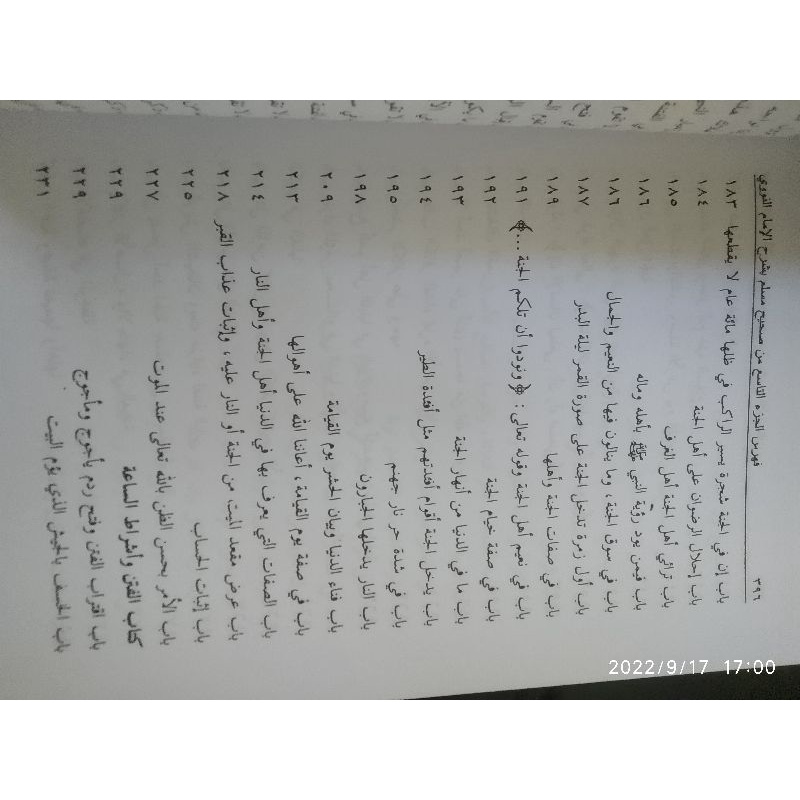 ٣٩٦ فهرس الجزء التاسع من صحيح مسلم بشرح الإمام النووي
باب إن في الجنة شجرة يسير الراكب في ظلها مائة عام لا يقطعها ١٨٣
باب إحلال الرضوان على أهل الجنة ١٨٤
باب ترائي أهل الجنة أهل الغرف ١٨٥
باب فيمن يود رؤية النبي ﷺ بأهله وماله ١٨٦
باب في سوق الجنة ، وما ينالون فيها من النعيم والجمال ١٨٦
باب أول زمرة تدخل الجنة على صورة القمر ليلة البدر ١٨٧
باب في صفات الجنة وأهلها ١٨٩
باب في نعيم أهل الجنة وقوله تعالى : ﴿ ونودوا أن تلكم الجنة ... ﴾ ١٩١
باب في صفة خيام الجنة ١٩٢
باب ما في الدنيا من أنهار الجنة ١٩٣
باب يدخل الجنة أقوام أفئدتهم مثل أفئدة الطير ١٩٤
باب في شدة حر نار جهنم ١٩٥
باب النار يدخلها الجبارون ١٩٨
باب فناء الدنيا وبيان الحشر يوم القيامة ٢٠٩
باب في صفة يوم القيامة ، أعاننا الله على أهوالها ٢١٣
باب الصفات التي يعرف بها في الدنيا أهل الجنة وأهل النار ٢١٤
باب عرض مقعد الميت من الجنة أو النار عليه ، وإثبات عذاب القبر ٢١٨
باب إثبات الحساب ٢٢٥
باب الأمر بحسن الظن بالله تعالى عند الموت ٢٢٧
كتاب الفتن وأشراط الساعة ٢٢٩
باب اقتراب الفتن وفتح ردم يأجوج ومأجوج ٢٢٩
باب الخسف بالجيش الذي يؤم البيت ٢٣١
2022/9/17 17:00